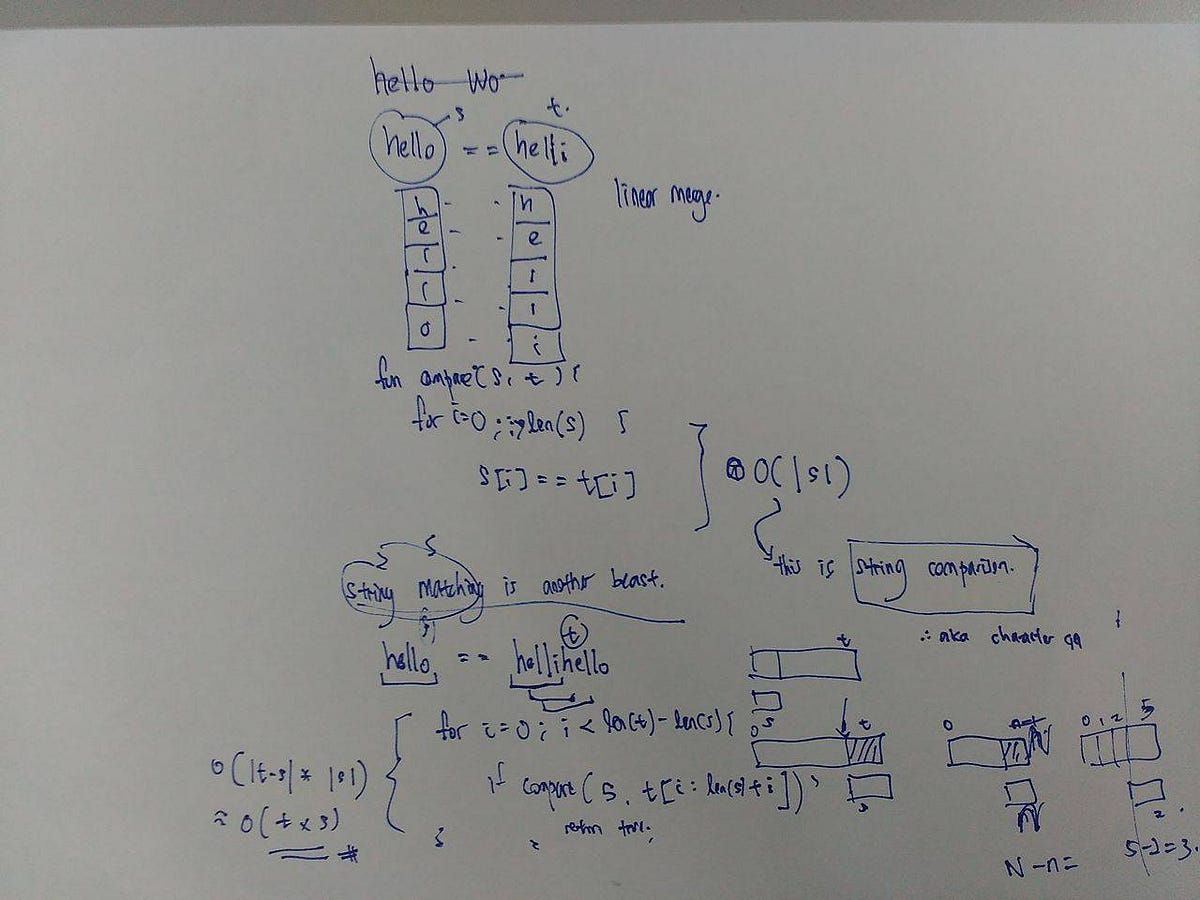 hello Wo
s t.
hello == helli
linear merge.
h h
e e
l l
l l
o i
fun compare(s, t) {
for i=0 ; i; len(s) {
s[i] == t[i]
O(|s|)
this is string comparison.
∴ aka character
string matching is another beast.
s t
hello == hellihello
for i=0; i < len(t)-len(s) {
if compare(s, t[i: len(s)+i])
return true;
}
O(|t-s| * |s|)
≈ O(t x s)
t
s
0 t
s
0
N-n=
0 1 2 5
2.
5-2=3.